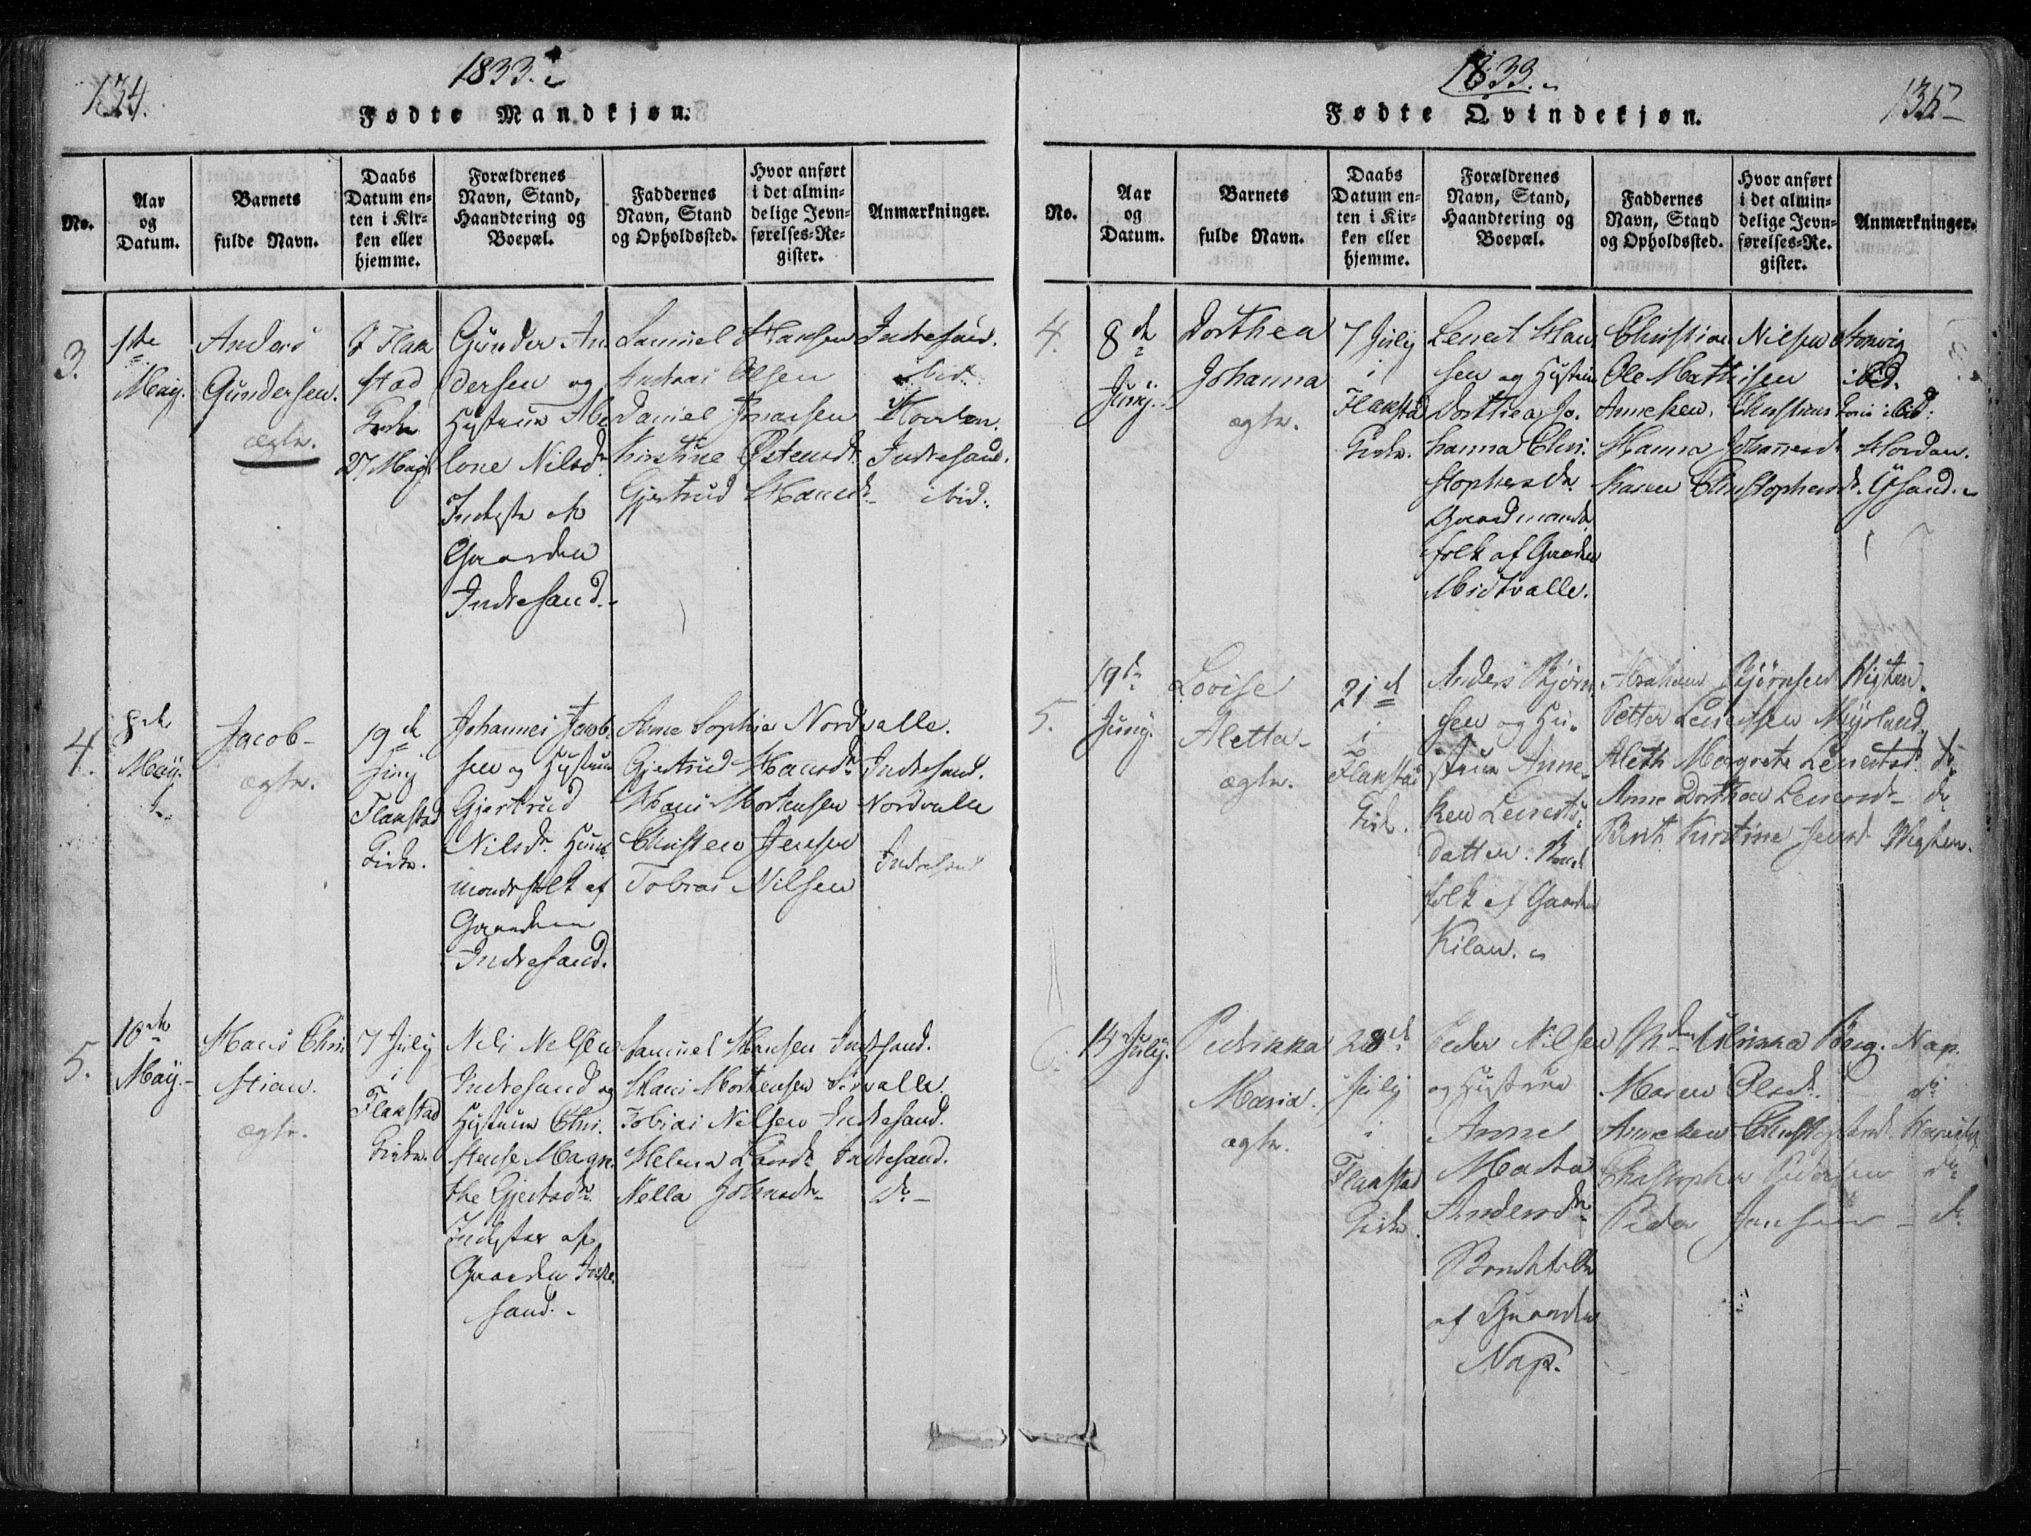 134.
1833.
Fødte Mandkjøn.
No.
Aar
og
Datum.
Barnets
fulde Navn.
Daabs
Datum en-
ten i Kir-
ken eller
hjemme.
Forældrenes
Navn, Stand,
Haandtering og
Boepæl.
Faddernes
Navn, Stand
og Opholdssted.
Hvor anført
i det almin-
delige Jevn-
førelses-Re-
gister.
Anmærkninger.
3.
1ste
May.
Anders
Gundersen.
ægte.
I Flak
stad
Kirke
27 May
Gunder An
dersen og
Hustrue Abe
lone Nilsdr
Inderste
Gaarden
Indresand.
Samuel Hansen Indresand.
Andreas Olsen ibid.
Daniel
Kirstine Indresand.
Gjertrud Hansdr ibid.
4.
8de
May.
Jacob
ægte.
19de
Juny
Flakstad
Kirke.
Johannes Jacob
sen og Hustrue
Gjertrud
Nilsdr. Huus
mandsfolk af
Gaarden
Indresand.
Anne Sophie Nordvalle.
Gjertrud Hansdr. Indresand.
Hans Mortensen Nordvalle
Christen Jensen
Tobias Nilsen Indresand
5.
10de
May.
Hans Chri
stian.
ægte.
7 July
i
Flakstad
Kirke.
Nels Nelsen
Indresand og
Hustrue Chri
stense Magre
the Gjertsdr.
Inderster af
Gaarden Indre
sand.
Samuel Hansen Indresand.
Hans Mortensen
Tobias Nelsen Indresand.
Helena Indresand.
Nella Johnsdr do
1833.
135
Fødte Qvindekjøn.
No.
Aar
og
Datum.
Barnets
fulde Navn.
Daabs
Datum en-
ten i Kir-
ken eller
hjemme.
Forældrenes
Navn, Stand,
Haandtering og
Boepæl.
Faddernes
Navn, Stand
og Opholdssted.
Hvor anført
i det almin-
delige Jevn-
førelses-Re-
gister.
Anmærkninger.
4.
8de
Juny.
Dorthea
Johanna
ægte.
7 July
i
Flakstad
Kirke.
Lenert Han
sen og Hustrue
Dorthea Jo
hanna Chri
stophersdr.
Gaardmands
folk af Gaarden
Midtvalle.
Christian Nilsen Storvig
Ole Mathisen ibid.
Anneken Christians ibid.
Hanna Johannesdr
Karen Christophersdr.
5.
19de
Juny.
Lovise
Aletta
ægte.
21de
i
Flakstad
Kirke.
Anders Bjørn
sen og Hu
strue Anne
ken Lenerts
datter. Bonde
folk af Gaarden
Kilan.
Abraham Bjørnsen Vigten.
Petter Lenertsen Myrland
Aleth Margrete Lenertsd. do
Anne Dorthea Lenertsdr do
Berith Kirstine Jensd Vigten.
6.
14 July.
Pedrikka
Maria.
ægte.
28de
July
i
Flakstad
Kirke.
Peder Nilsen
og Hustrue
Anne
Marta
Andersdr.
Bondefolk
af Gaarden
Nap.
Ulrikka Berg. Nap.
Maren Olsdr. do
Anneken Christophersd.
Christopher Pedersen do
Peder Jensen do